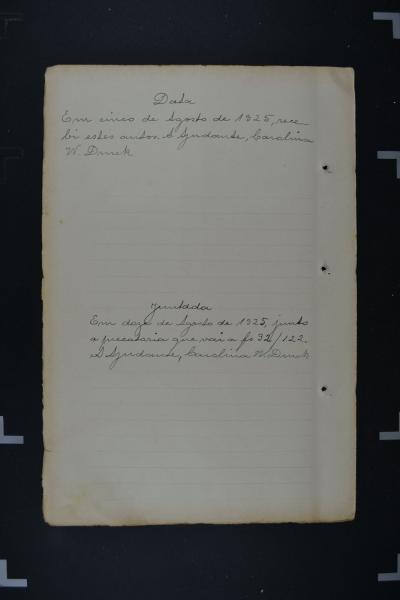 Data
Em cinco de Agosto de 1925, rece-
bi estes autos. A Ajudante, Carolina
W. Druck
Juntada
Em doze de Agosto de 1925, junto
a precatoria que vai a fs 92/122.
A Ajudante, Carolina W. Druck